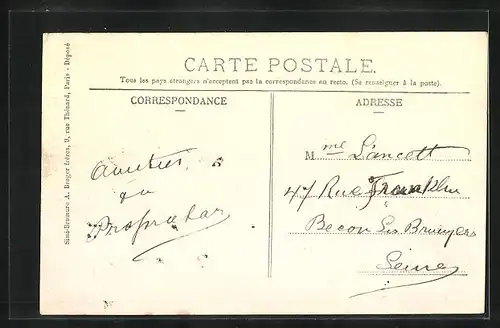 CARTE POSTALE.
Tous les pays étrangers n'acceptent pas la correspondance au recto. (Se renseigner à la poste).
CORRESPONDANCE
Amitiés
du
Proprétar
ADRESSE
Mme Lancott
47 Rue Franklin
Becon Les Bruyeres
Seine
Simi-Bromure A. Breger frères, 9, rue Thénard, Paris - Déposé